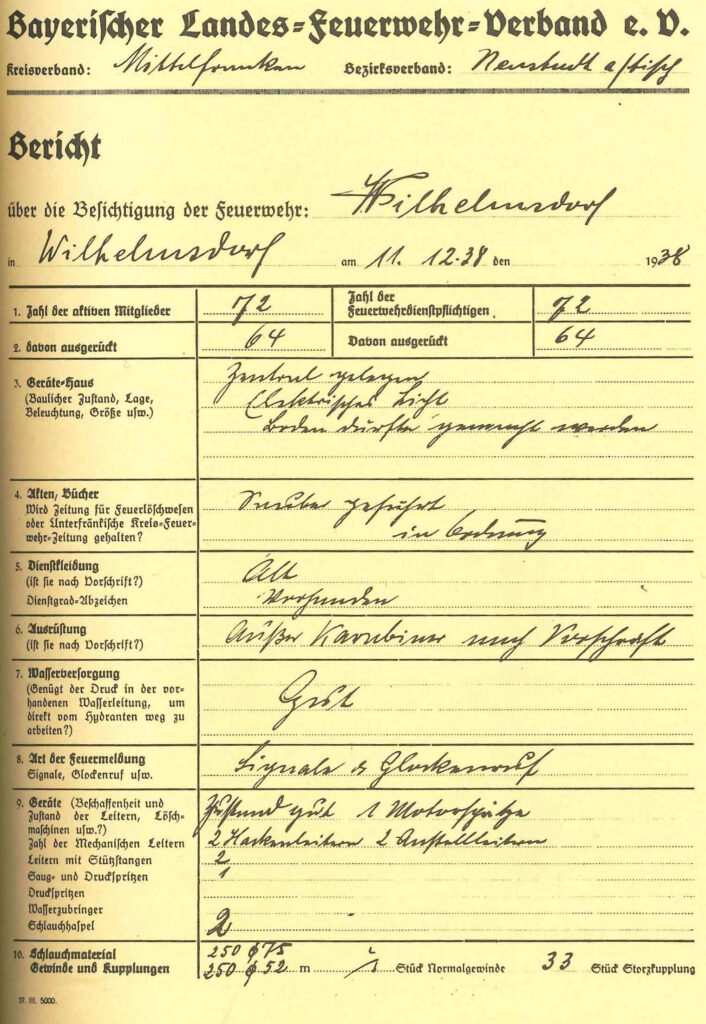 Bayerischer Landes=Feuerwehr=Verband e. V.
Kreisverband: Mittelfranken Bezirksverband: Neustadt a/Aisch
Bericht
über die Besichtigung der Feuerwehr: Wilhelmsdorf
in Wilhelmsdorf am 11. 12.38 den 1938
1. Zahl der aktiven Mitglieder 72 Zahl der Feuerwehrdienstpflichtigen 72
2. davon ausgerückt 64 Davon ausgerückt 64
3. Geräte=Haus
(Baulicher Zustand, Lage,
Beleuchtung, Größe usw.)
Zentral gelegen
Elektrisches Licht
Boden dürfte gemacht werden
4. Akten, Bücher
Wird Zeitung für Feuerlöschwesen
oder Unterfränkische Kreis=Feuer=
wehr=Zeitung gehalten?
Sauber geführt
in Ordnung
5. Dienstkleidung
(ist sie nach Vorschrift?)
Dienstgrad=Abzeichen
Alt
Vorhanden
6. Ausrüstung
(ist sie nach Vorschrift?)
Außer Karabiner nach Vorschrift
7. Wasserversorgung
(Genügt der Druck in der vor=
handenen Wasserleitung, um
direkt vom Hydranten weg zu
arbeiten?)
Gut
8. Art der Feuermeldung
Signale, Glockenruf usw.
Signale & Glockenruf
9. Geräte (Beschaffenheit und
Zustand der Leitern, Lösch=
maschinen usw.?)
Zustand gut 1 Motorspritze
Zahl der Mechanischen Leitern 2 Hackenleitern 2 Anstellleitern
Leitern mit Stützstangen 2
Saug= und Druckspritzen 1
Druckspritzen
Wasserzubringer
Schlauchhaspel 2
10. Schlauchmaterial 250 ϕ 75
Gewinde und Kupplungen 250 ϕ 52 m Stück Normalgewinde 33 Stück Storzkupplung
37. III. 5000.